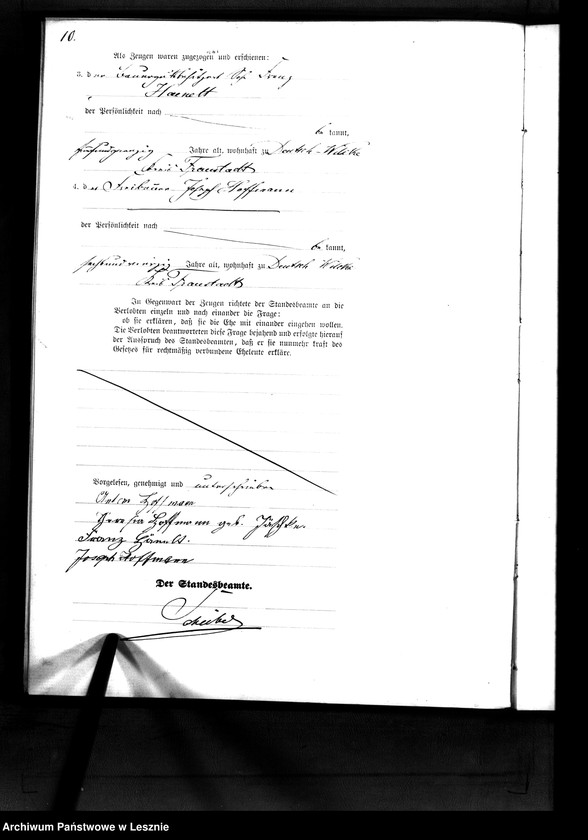 10.
Als Zeugen waren zugezogen und erschienen:
3. der Bauergutsbesitzer Franz
Haenelt
der Persönlichkeit nach
be kannt,
Jahre alt, wohnhaft zu Deutsch-Wilke
Kreis Fraustadt
4. der Freibauer Joseph Hoffmann
der Persönlichkeit nach
be kannt,
sechsundvierzig Jahre alt, wohnhaft zu Deutsch Wilke
Kreis Fraustadt
In Gegenwart der Zeugen richtete der Standesbeamte an die
Verlobten einzeln und nach einander die Frage:
ob sie erklären, daß sie die Ehe mit einander eingehen wollen.
Die Verlobten beantworteten diese Frage bejahend und erfolgte hierauf
der Ausspruch des Standesbeamten, daß er sie nunmehr kraft des
Gesetzes für rechtmäßig verbundene Eheleute erkläre.
Vorgelesen, genehmigt und unterschrieben
Anton Hoffmann
Theresia Hoffmann geb. Jäschke.
Franz Hänelt.
Joseph Hoffmann
Der Standesbeamte.
Archiwum Państwowe w Lesznie